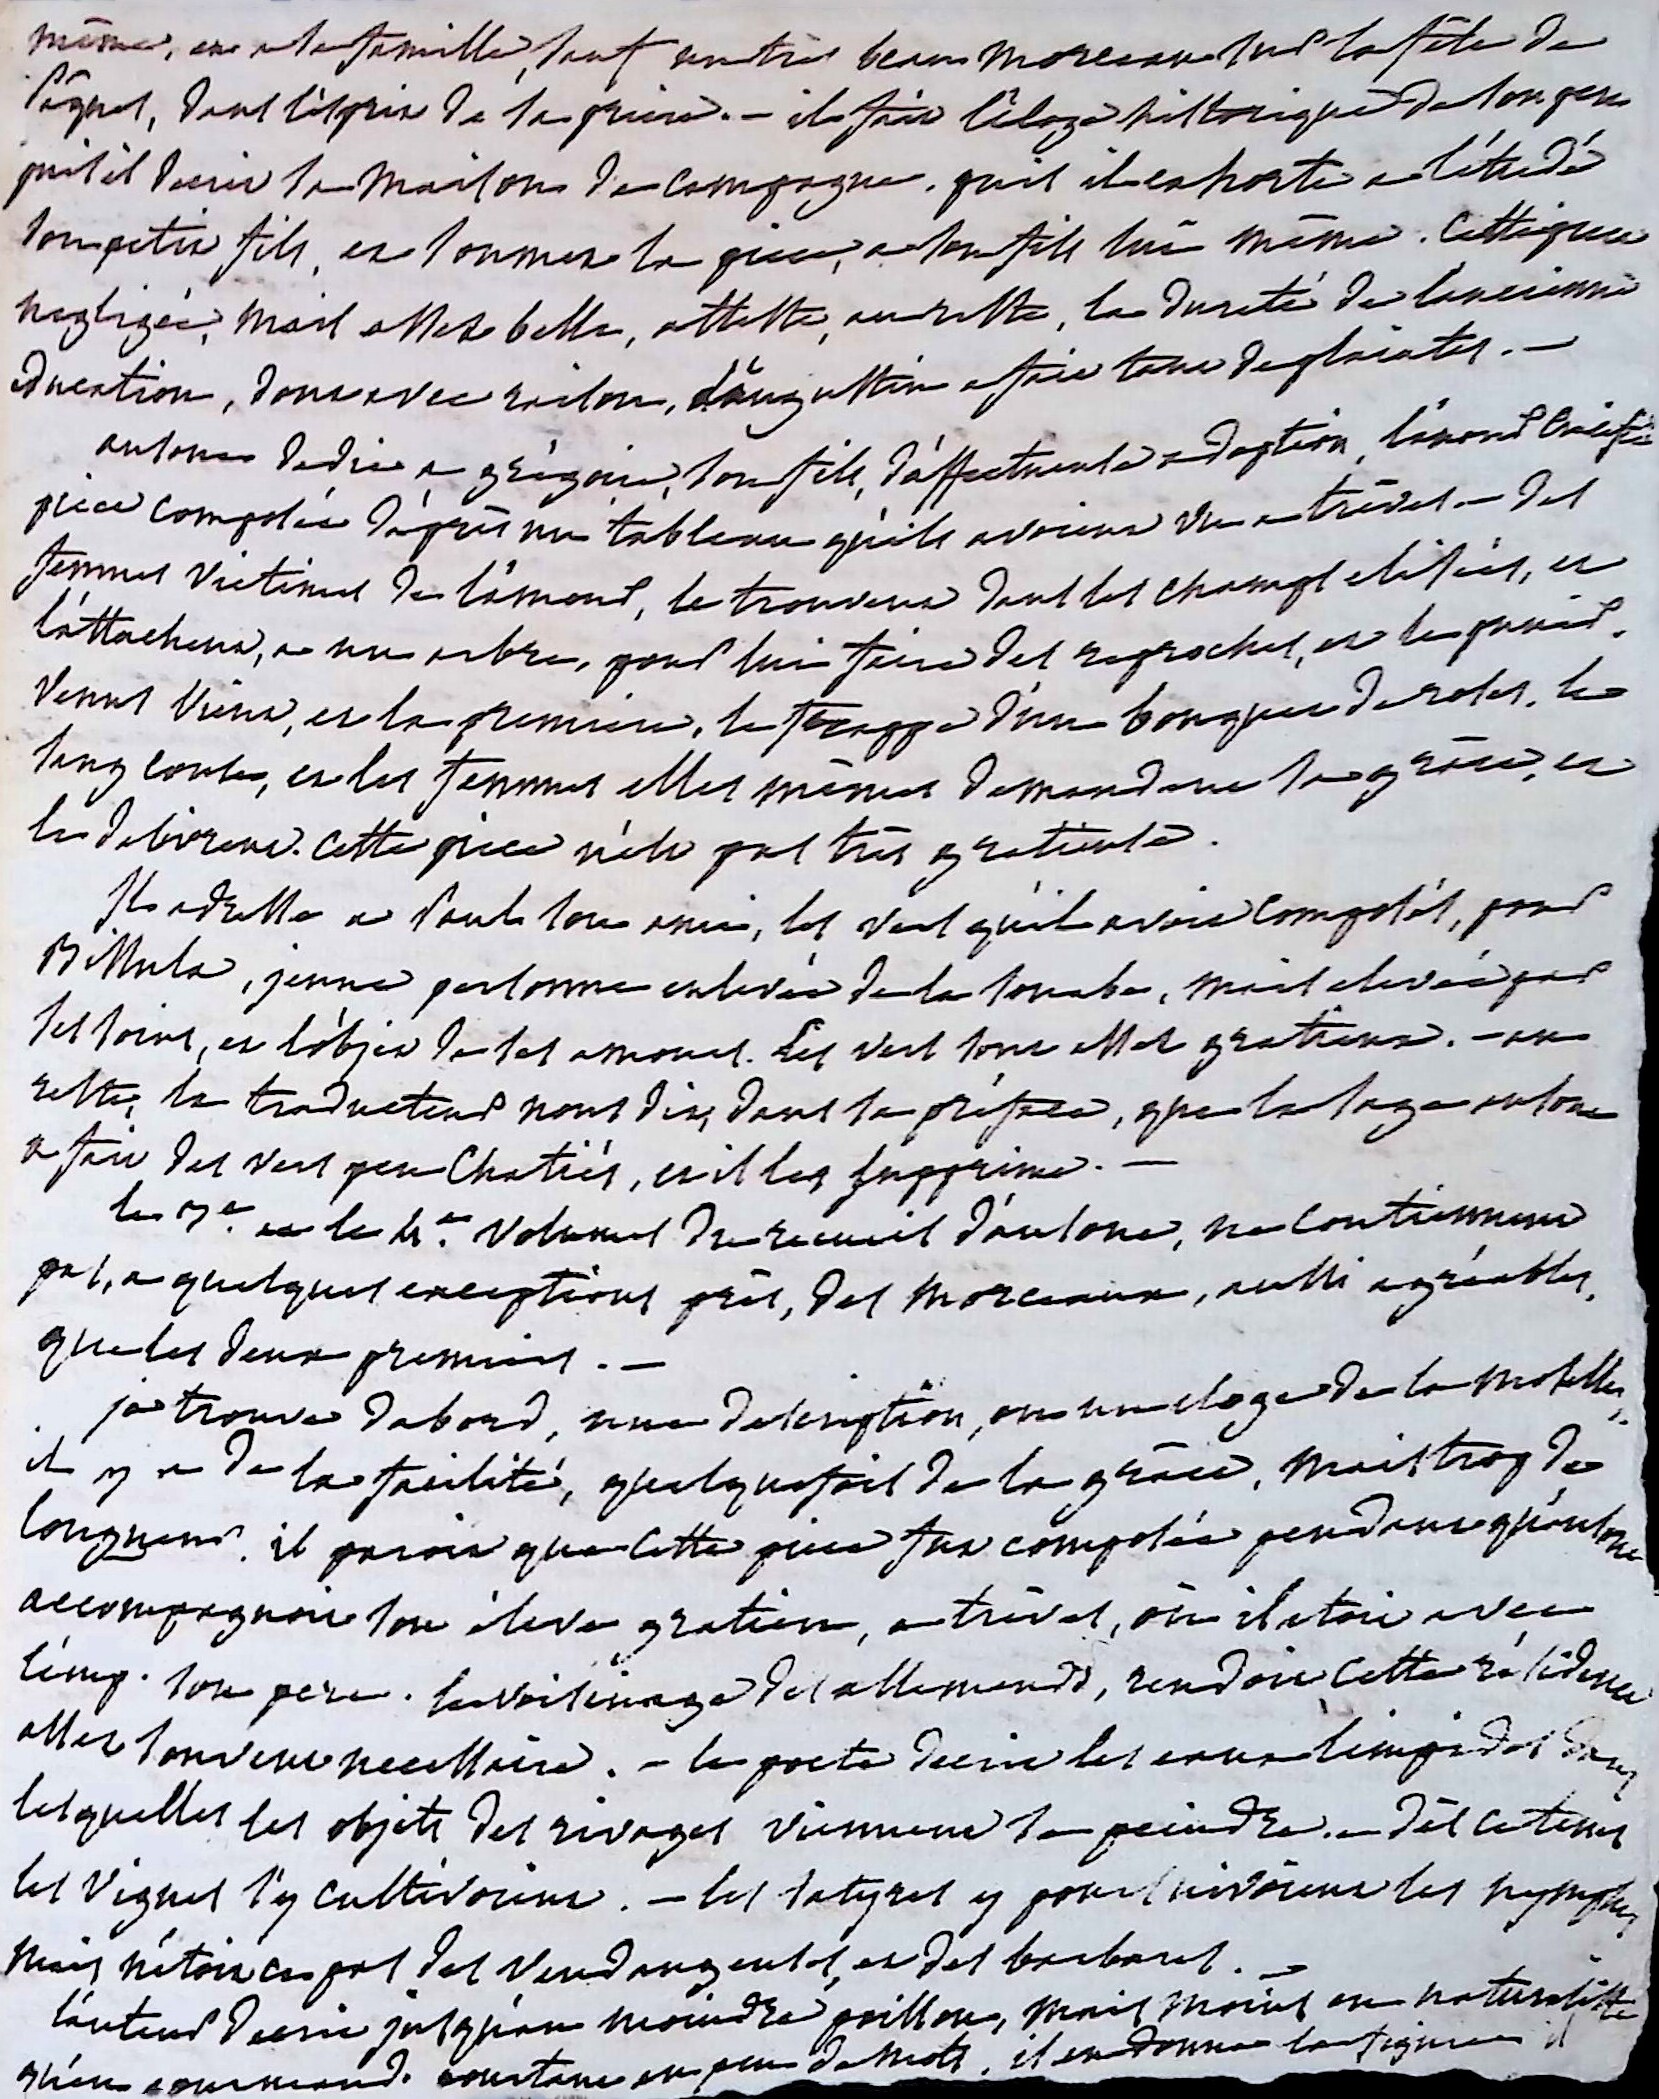 même, et a sa famille, sauf un très beau morceau sur la fête de
Pâques, dans l'esprit de la prière. - il fait l'éloge historique de son père
puis il decrit sa maison de campagne. puis il exhorte a l'étude
son petit fils, et soumet la piece, a son fils lui même. Cette piece
negligée, mais assez belle, atteste, au reste, la dureté de l'ancienne
education, dont avec raison, St augustin a fait tant de plaintes. -
ausone dedie a grégoire, son fils, d'affectueuse adoption, l'amour Crucifié
piece composée d'après un tableau qu'ils avoient vu a trèves - des
femmes victimes de l'amour, le trouvent dans les champs elisées, et
l'attachent, a un arbre, pour lui faire des reproches, et le punir.
Venus vient, et la premiere, le frappe d'un bouquet de roses. le
sang coule, et les femmes elles mêmes demandent sa grâce, et
le delivrent. Cette piece n'est pas très gratieuse.
Il adresse a Paul son ami, les vers qu'il avoit composés, pour
Bissula, jeune personne enlevée de la souabe, mais elevée par
ses soins, et l'objet de ses amours. Ses vers sont assez gratieux. - au
reste, le traducteur nous dit, dans sa préface, que le sage ausone
a fait des vers peu Chatiés, et il les supprime. -
le 3e. et le 4e. volumes du recueil d'ausone, ne contiennent
pas, a quelques exceptions près, des morceaux, aussi agréables,
que les deux premiers. -
je trouve dabord, une description, ou un eloge de la moselle,
il y a de la facilité, quelquefois de la grâce, mais trop de
longueur. il paroit que cette piece fut composée pendant qu'ausone
accompagnoit son éleve gratien, a trèves, où il etoit avec
l'emp. son pere. le voisinage des allemands, rendoit cette résidence
assez souvent necessaire. - le poete decrit les eaux limpides dans
lesquelles les objets des rivages viennent se peindre. - dès ce tems
les vignes s'y cultivoient. - les satyres y poursuivoient les nymphes
mais n'étoit ce pas des vendangeurs, et des barbares. -
l'auteur decrit jusqu'au moindre poisson, mais moins en naturaliste
qu'en gourmand. pourtant en peu de mots, il en donne la figure il